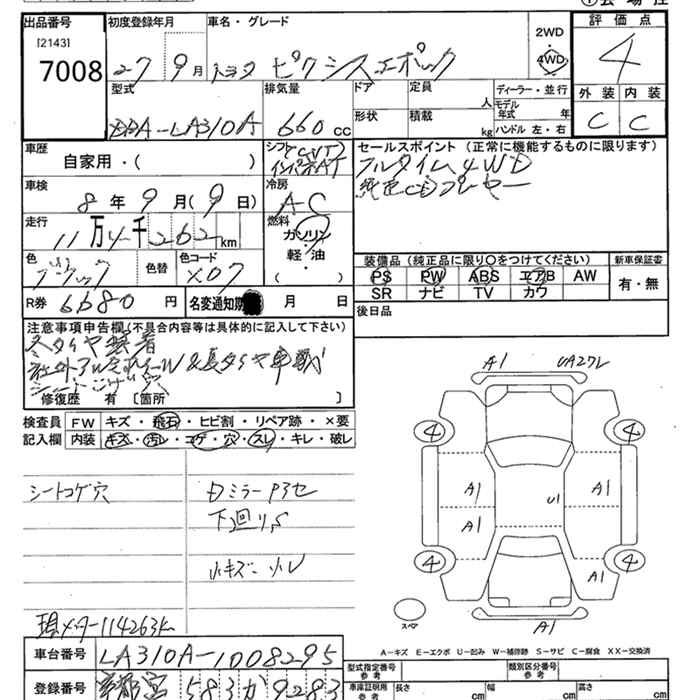 出品番号 初度登録年月 車名・グレード 2WD 評価点
[2143] 4WD
7008 27 9月 トヨタ ピクシスエポック 4
型式 排気量 ドア 定員 ディーラー・並行 外装 内装
DBA-LA310A 660cc 形状 積載 人 kg モデル年式 年 ハンドル 左・右 C C
車歴 シフト セールスポイント (正常に機能するものに限ります)
自家用・( ) CVT インパネAT フルタイム4WD
車検 冷房 純正CDプレーヤー
8年9月(9日) AC
走行 燃料
11万4千262km ガソリン
色 色替 色コード 軽・油 装備品 (純正品に限り○をつけてください) 新車保証書
ブラック X07 ( ) PS PW ABS エアB AW 有・無
R券 6680円 名変通知期限 月 日 SR ナビ TV カワ
注意事項申告欄(不具合内容等は具体的に記入して下さい) 後日品
冬タイヤ装着
シートこげ穴
修復歴 有 [箇所 ]
A1 UA27L
検査員 FW キズ・飛石・ヒビ割・リペア跡・×要
記入欄 内装 キズ・汚レ・コゲ・穴・スレ・キレ・破レ
4 4
シートコゲ穴
A1 U1 A1
下廻りS
A1
小キズ
4 4
A1
スペア
A1
現メーター114263k
A-キズ E-エクボ U-凹み W-補修跡 S-サビ C-腐食 XX-交換済
車台番号 LA310A-1008295
型式指定番号 参考 類別区分番号 参考
登録番号 宇都宮 583か9283
車庫証明用 参考 長さ cm 幅 cm 高さ cm